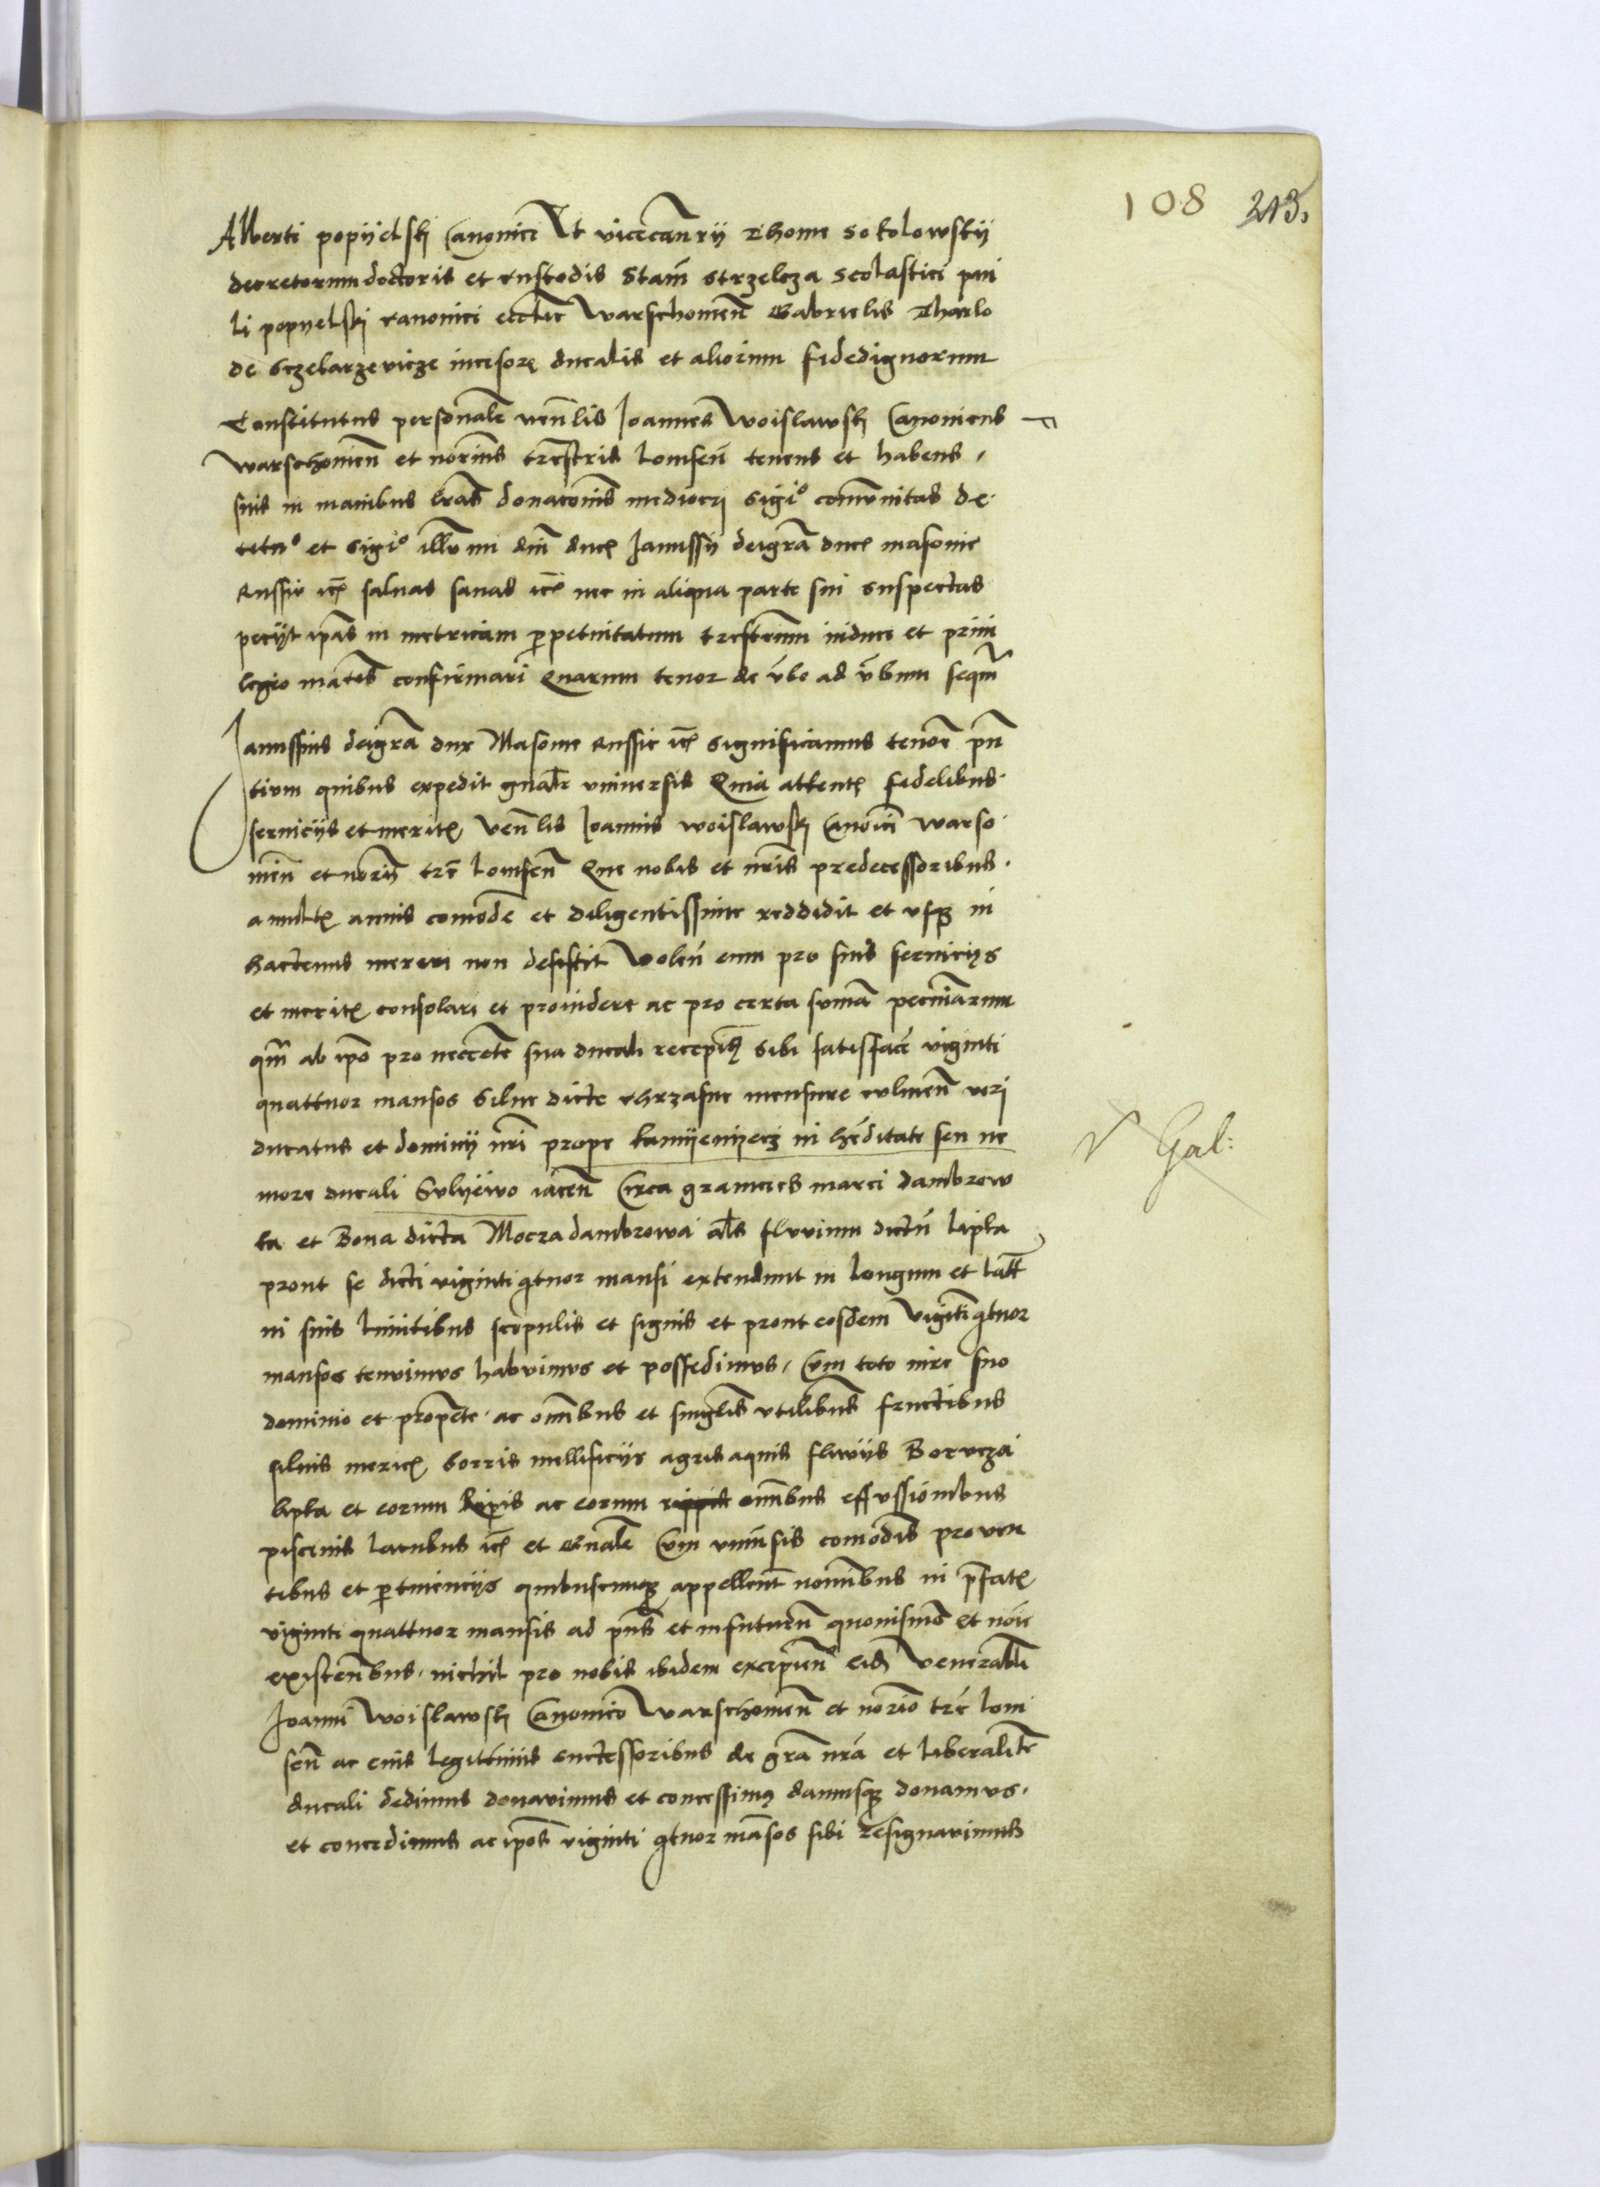 108 213.
Alberti popijelskj Canonici Et vicecancrij Thome Sokolowskij
decretorum doctoris et custodis Stani Strzelcza Scolastici pau
li popyelskj canonici eccliae Warschouien Gabrielis Tharlo
de Sczekarzevicze incisoris ducalis et aliorum fidedignorum
Constitutus personale venlis Joannes Woislawskj Canonicus
Warschouien et norius trestris Lomsen tenens et habens
suis in manibus lras donaconis mediocri sigio comunitas de
tetuo et sigio illmi dni ducis Janussij dei gra ducis masouie
Russie etc salvas sanas etc nec in aliqua parte sui suspectas
pecijt ipas in metricam perpetuitatum trestrem induci et priui
legio mates confirmari Quarum tenor de vbo ad vbum sequr
Janussius dei gra dux Masouie Russie etc significamus tenore pn
tium quibus expedit gnale vniuersis Quia attentis fidelibus
seruicijs et meritis Venlis Joannis Woislawskj Canonici Warso
uien et norij tre Lomsen Que nobis et nris predecessoribus
a multis annis comode et diligentissime reddidit et vsque in
hactenus mereri non desistit Volen eum pro suis seruicijs
et meritis consolari et prouidere ac pro certa suma pecuniarum
qm ab ipo pro neccete sua ducali recepimus sibi satisface viginti
quattuor mansos Silue dicte chrzasne mensure culmen veri
ducatus et dominij nri prope kamijenijecz in heditate seu ne
more ducali Sulyewo iacen Circa granicies marci dambrow
ka et Bona dicta Moczadambrowa als fluuium dictu lipka
prout se dicti viginti qtuor mansi extendunt in longum et latt
in suis limitibus scopulis et signis et prout eosdem viginti qtuor
mansos tenuimus habuimus et possedimus Cum toto iure suo
dominio et propete ac omibus et singlis vtilibus fructibus
siluis mericis borris mellificijs agris aquis fluuijs Borucza
lipka et eorum Ripis ac eorum rippis omibus effussionibus
piscinis lacubus etc et Gnale Cum vniuersis comodis prouen
tibus et ptinencijs quibuscumque appellent nomibus in prefatis
viginti quattuor mansis ad pns et in futurum quouismo et noie
existentibus nichil pro nobis ibidem excipien Eid Venerabli
Joanni Woislawskj Canonico Warschouien et norio tre Lom
sen ac eius legittimis successoribus de gra nra et liberalite
ducali dedimus donauimus et concessimus damusque donamus
et concedimus ac ipos viginti qtuor masos sibi resignauimus
Gal: